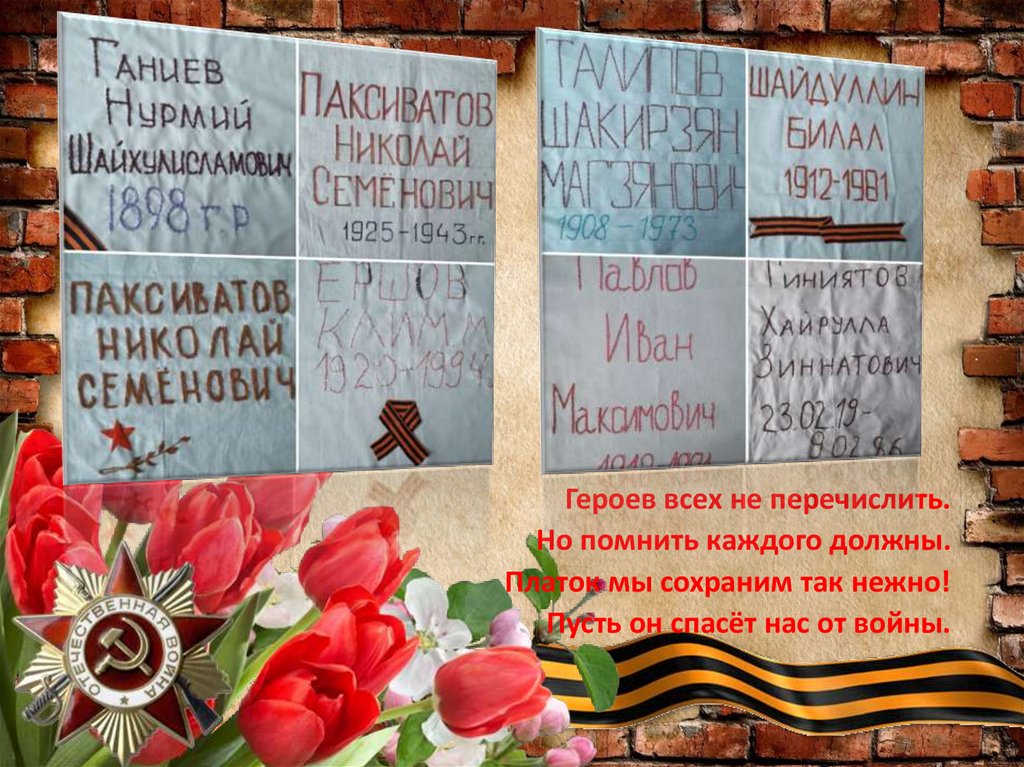 Ганиев
Нурмий
Шайхулисламович
1898 г.р
Паксиватов
Николай
Семёнович
1925-1943гг.
Паксиватов
Николай
Семёнович
Ершов
Клим
1920-1994г.
Талипов
Шакирзян
Магзянович
1908-1973
Шайдуллин
Билал
1912-1981
Павлов
Иван
Максимович
Гиниятов
Хайрулла
Зиннатович
23.02.19-
9.02.86
Героев всех не перечислить.
Но помнить каждого должны.
Платок мы сохраним так нежно!
Пусть он спасёт нас от войны.
ОТЕЧЕСТВЕННАЯ ВОЙНА